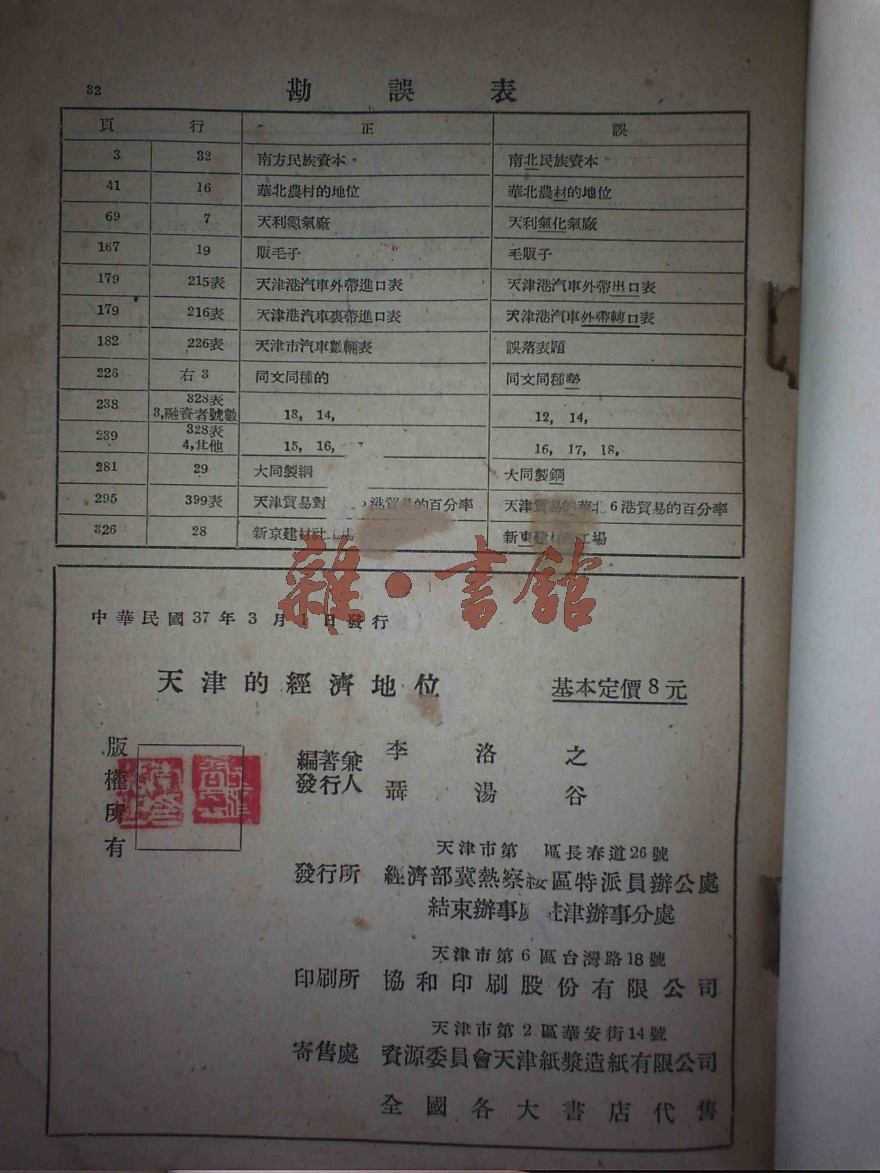 32
勘誤表
頁 行 正 誤
3 32 南方民族資本 南北民族資本
41 16 華北農村的地位 華北農材的地位
69 7 天利氮氣廠 天利氣化氣廠
167 19 販毛子 毛販子
179 215表 天津港汽車外帶進口表 天津港汽車外帶出口表
179 216表 天津港汽車裏帶進口表 天津港汽車外帶轉口表
182 226表 天津市汽車數輛表 誤落表題
226 右3 同文同種的 同文同種勢
238 328表 3,融資者號數 13, 14, 12, 14,
239 328表 4,其他 15, 16, 16, 17, 18,
281 29 大同製鋼 大同製鋼
295 399表 天津貿易對 港貿易的百分率 天津貿易的華北6港貿易的百分率
326 28 新京建材社 新東建 工場
雜·書館
中華民國37年3月1日發行
天津的經濟地位 基本定價8元
版權所有
編著兼發行人 李洛之 聶湯谷
天津市第 區長春道26號
發行所 經濟部冀熱察綏區特派員辦公處
結束辦事處駐津辦事分處
天津市第6區台灣路18號
印刷所 協和印刷股份有限公司
天津市第2區華安街14號
寄售處 資源委員會天津紙漿造紙有限公司
全國各大書店代售